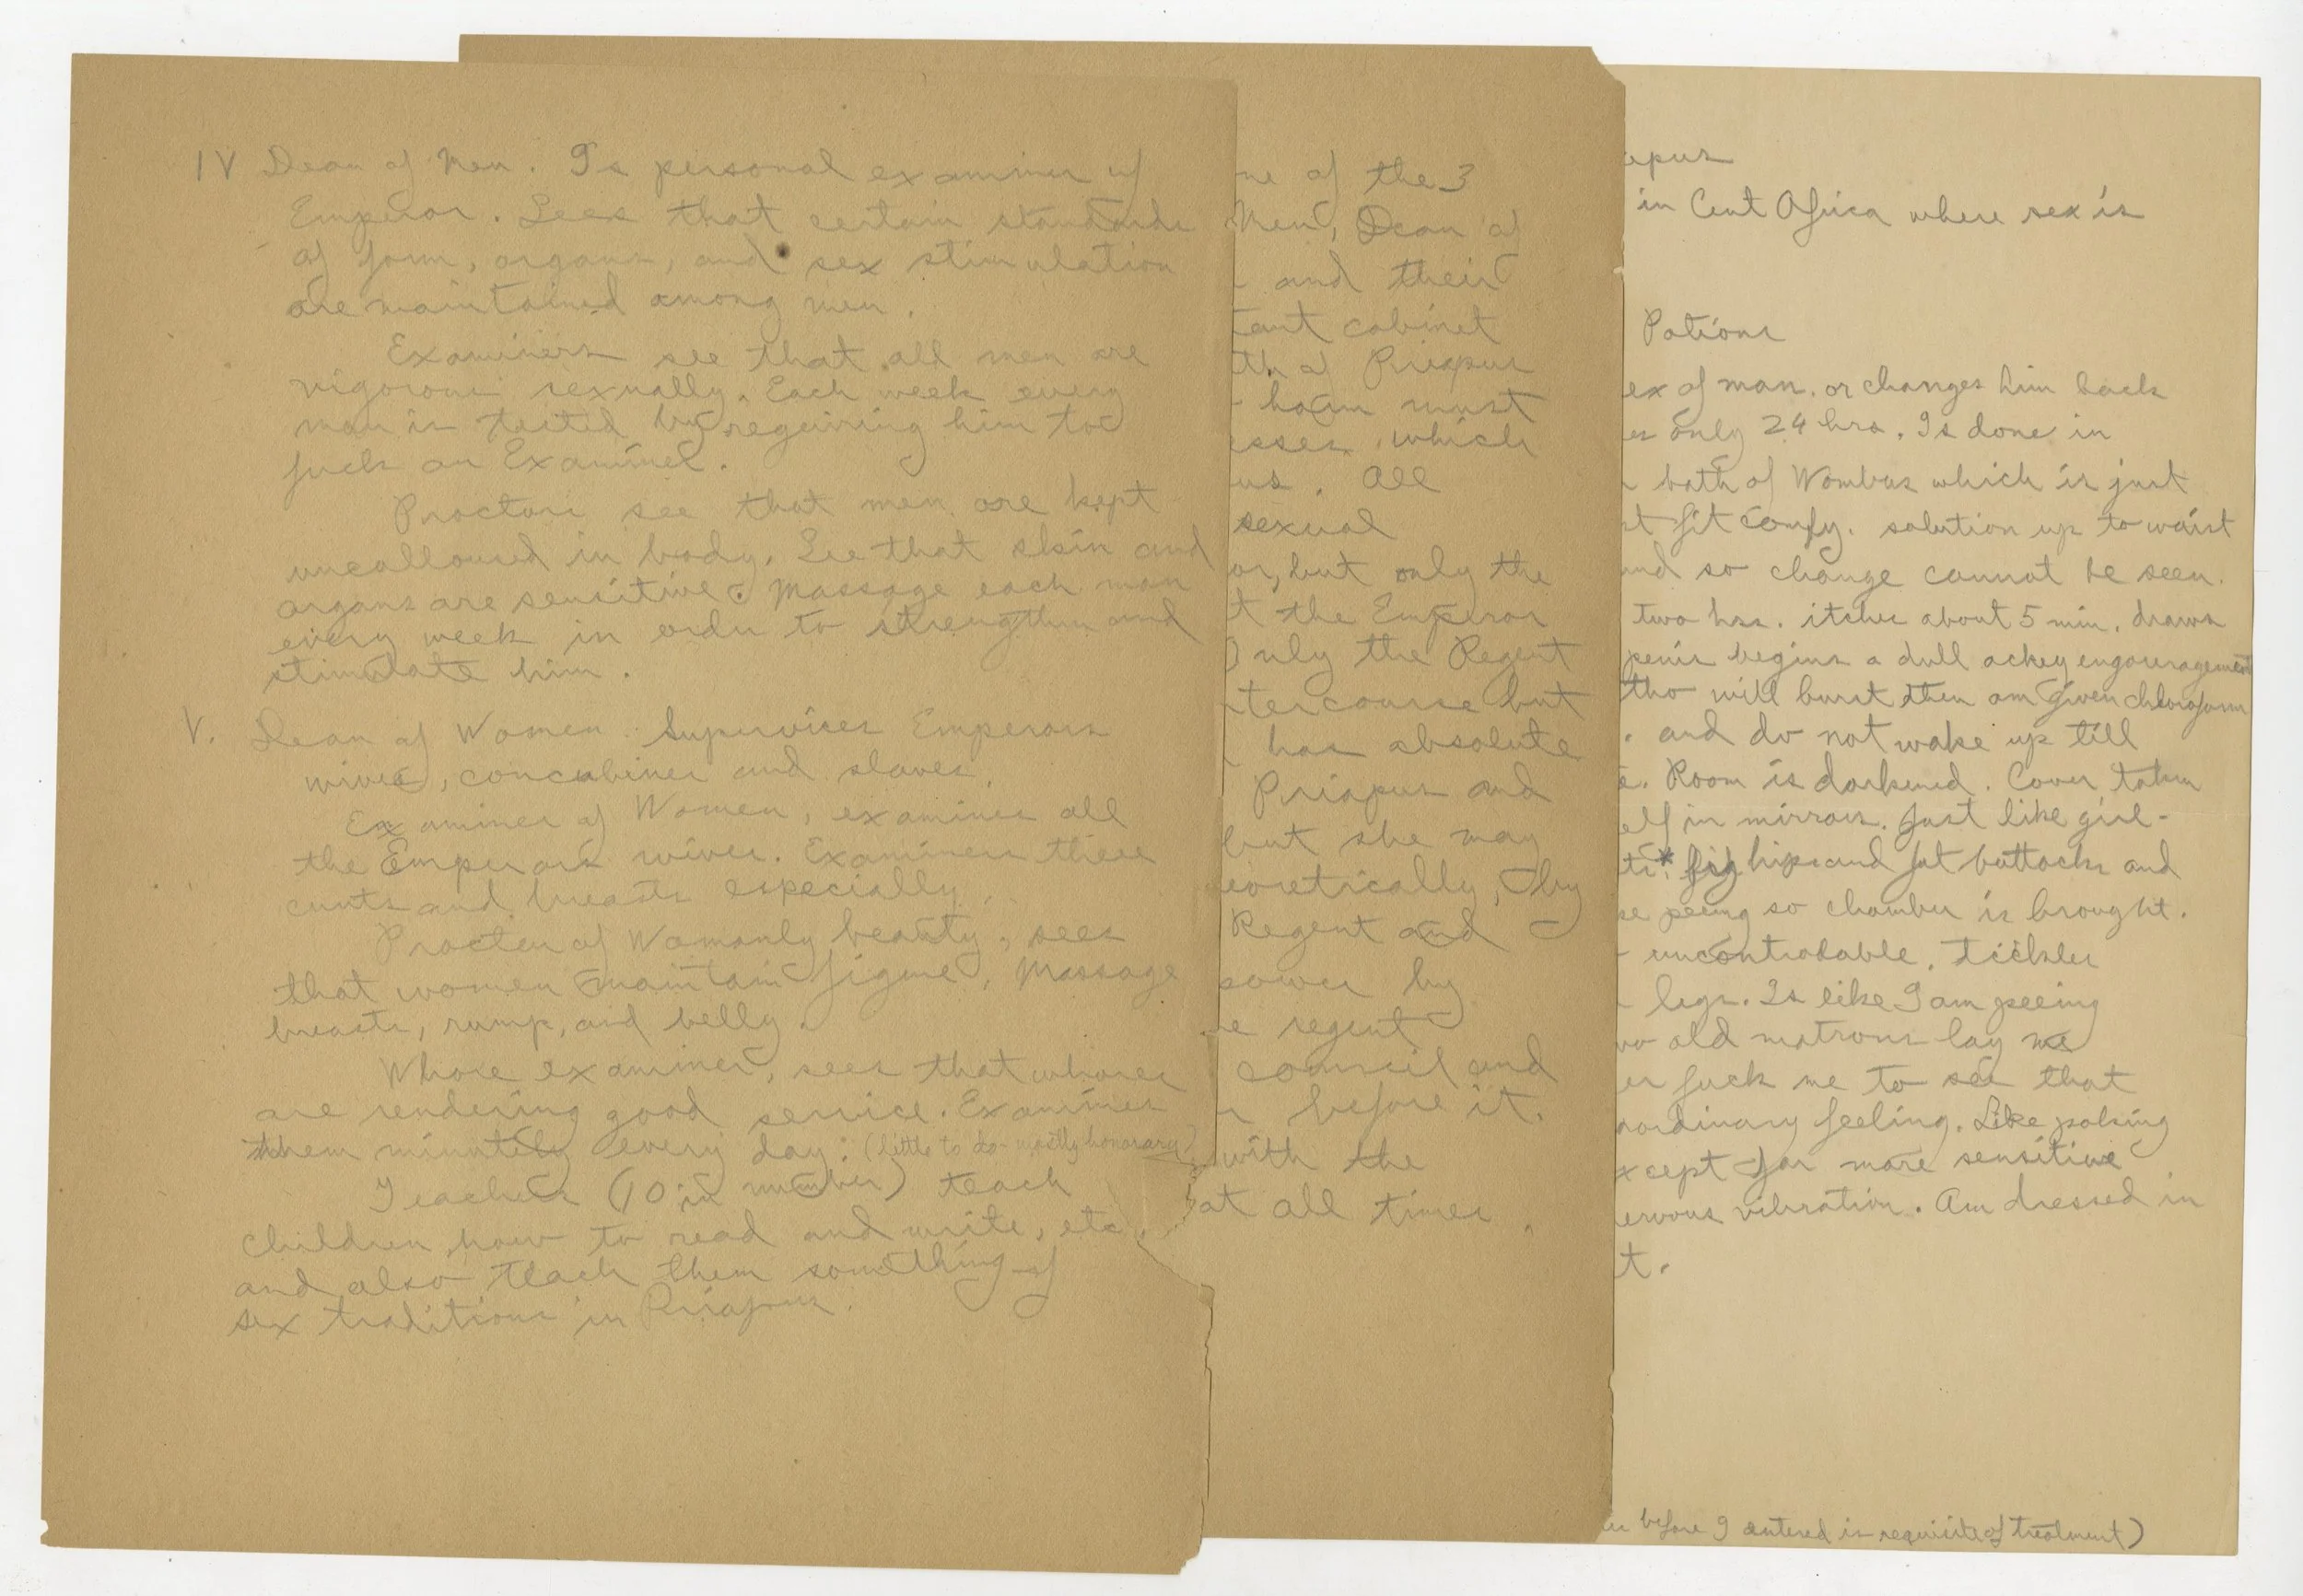 IV Dean of Men. Is personal examiner of
Emperor. Sees that certain standards
of form, organs, and sex stimulation
are maintained among men.
Examiners see that all men are
vigorous sexually. Each week every
man is tested by requiring him to
fuck an Examiner.
Proctors see that men are kept
uncalloused in body. See that skin and
organs are sensitive. Massage each man
every week in order to strengthen and
stimulate him.
V. Dean of Women. Supervises Emperors
wives, concubines and slaves.
Examiner of Women, examines all
the Emperors wives. Examines their
cunts and breasts especially.
Procter of Womanly beauty, sees
that women maintain figure. Massage
breasts, rump, and belly.
Whore examiner, sees that whores
are rendering good service. Examines
them minutely every day. (little to do - mostly honorary)
Teachers (10 in number) teach
children how to read and write, etc.
and also teach them something of
sex traditions in Priapus.
ne of the 3
Men, Dean of
and their
tant cabinet
th of Priapus
harm must
esses, which
us. All
sexual
or, but only the
t the Emperor
Only the Regent
tercourse but
has absolute
Priapus and
but she may
eoretically, by
Regent and
power by
e regent
council and
before it.
with the
at all times.
apus
in Cent Africa where sex is
Potions
ex of man. or changes him back
es only 24 hrs. Is done in
bath of Wombus which is just
t sit comfy. solution up to waist
und so change cannot be seen.
two hrs. itches about 5 min. draws
penis begins a dull achey engouragement
tho will burst then am given chloroform
. and do not wake up till
e. Room is darkened. Cover taken
elf in mirrors. Just like girl -
ts* big hips and fat buttocks and
se peeing so chamber is brought.
uncontrolable. Tickles
legs. Is like I am peeing
wo old matrons lay me
er fuck me to see that
aordinary feeling. Like
xcept far more sensitive
ervous vibration. Am dressed in
t.
before I entered is requisite of treatment)